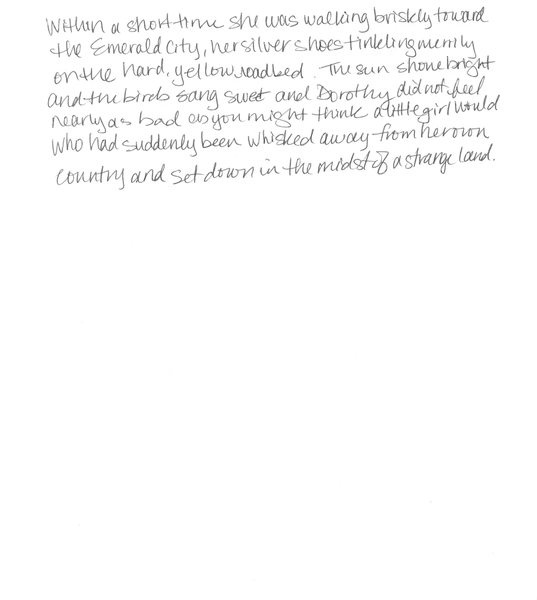 Within a short time she was walking briskly toward
the Emerald City, her silver shoes tinkling merrily
on the hard, yellow roadbed. The sun shone bright
and the birds sang sweet and Dorothy did not feel
nearly as bad as you might think a little girl would
who had suddenly been whisked away from her own
country and set down in the midst of a strange land.